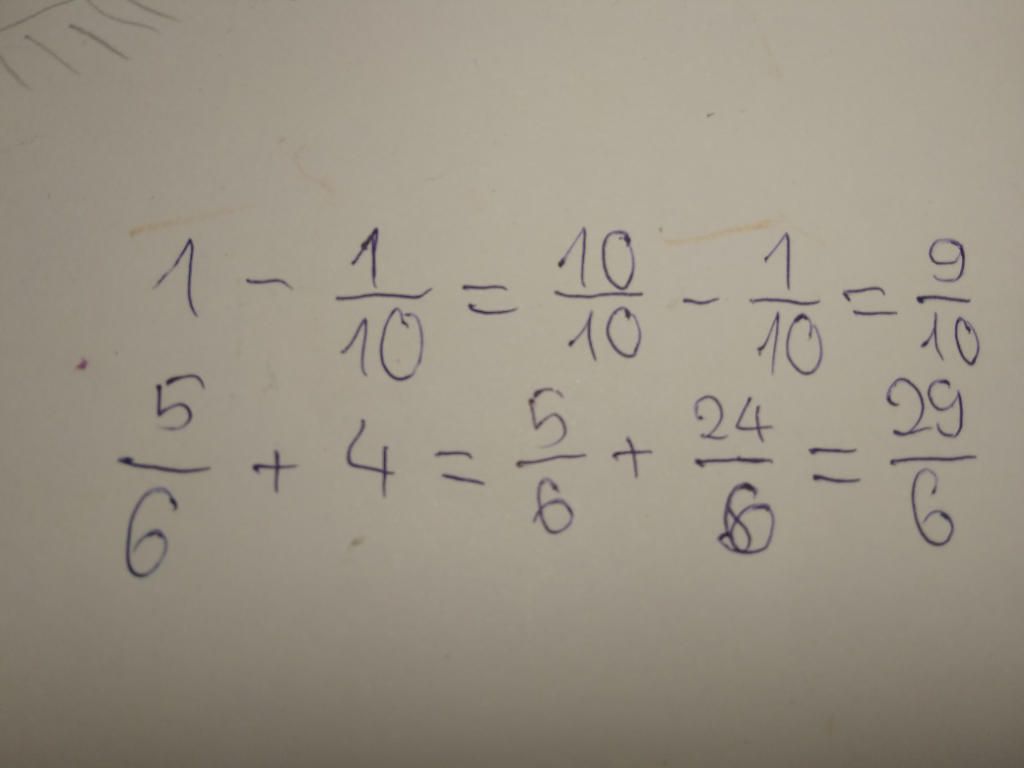 1 - 1/10 = 10/10 - 1/10 = 9/10
5/6 + 4 = 5/6 + 24/6 = 29/6